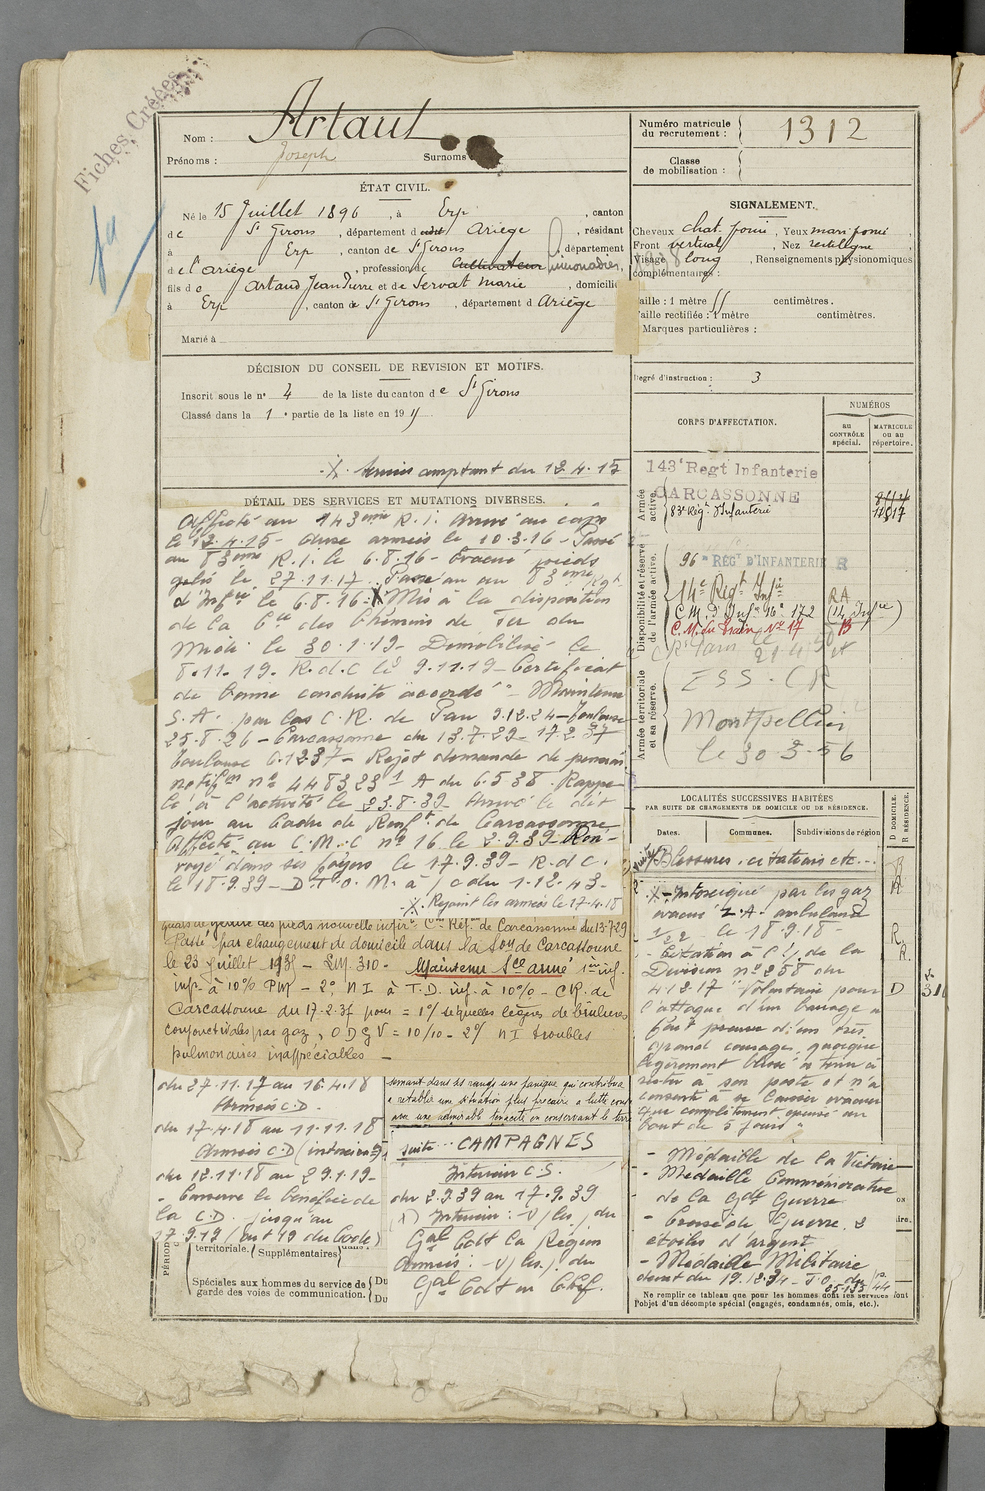 Fiches Créées
Nom : Artaut
Prénoms : Joseph Surnoms
Numéro matricule du recrutement : 1312
Classe de mobilisation :
ÉTAT CIVIL.
Né le 15 Juillet 1896, à Erp, canton
de St Girons, département d Ariège, résidant
à Erp, canton de St Girons, département
de l'ariège, profession de Cultivateur
fils de Artaud Jean Pierre et de Servat Marie, domiciliés
à Erp, canton de St Girons, département d Ariège
Marié à
SIGNALEMENT.
Cheveux chat. foncé, Yeux marr. foncé
Front vertical, Nez rectiligne
Visage long, Renseignements physionomiques
complémentaires :
Taille : 1 mètre centimètres.
Taille rectifiée : 1 mètre centimètres.
Marques particulières :
Degré d'instruction : 3
DÉCISION DU CONSEIL DE REVISION ET MOTIFS.
Inscrit sous le n° 4 de la liste du canton de St Girons
Classé dans la 1e partie de la liste en 19
Service comptant du 12.4.15
DÉTAIL DES SERVICES ET MUTATIONS DIVERSES.
Affecté au 143ème R.I. Arrivé au corps
le 12.4.15 - aux armées le 10.3.16 - Passé
au 83ème R.I. le 6.8.16 - Evacué pieds
gelés le 27.11.17. Passé au 83ème Rgt
d'Infie le 6.8.16. X Mis à la disposition
de la Cie des Chemins de Fer du
Midi le 30.1.19 - Démobilisé le
8.11.19. R.d.C le 9.11.19 - Certificat
de bonne conduite "accordé" - Maintenu
S.A. par las C.R. de Pau 9.12.24 - Toulouse
25.8.26 - Carcassonne du 13.7.29 - 17.2.37
Toulouse 6.12.37 - Rejet demande de pension
notifon n° 448323 A du 6.5.38. Rappe-
lé à l'activité le 23.8.39 - Arrivé le dit
jour au Cadre de Renft de Carcassonne
Affecté au C.M.C n° 16 le 2.9.39 - Ren-
voyé dans ses foyers le 17.9.39 - R.d.C.
le 18.9.39 - D.T.O.M. à / c du 1.12.43 -
X. Rejoint les armées le 17.4.18
des pieds nouvelle Con Réf. de Carcassonne du 13-7-29
Passé par changement de domicile dans la Son de Carcassonne
le 23 juillet 193 - LM. 310 - Maintenu Sce armé 1° inf.
inf. à 10% PM - 2° N I à T.D. inf. à 10% - C.R. de
Carcassonne du 17-2-37 pour = 1°/ séquelles légères de brûlures
conjonctivales par gaz, ODG V = 10/10 - 2°/ N I troubles
pulmonaires inappréciables -
du 27.11.17 au 16.4.18
Armées C.D.
du 17.4.18 au 11.11.18
Armées C.D
du 12.11.18 au 29.1.19 -
- Conserve le bénéfice de
la C.D. jusqu'au
territoriale. Supplémentaires
Spéciales aux hommes du service de
garde des voies de communication.
Du
Du
semant dans les rangs une panique qui contribua
à rétablir une situation plus précaire a lutté
avec une admirable tenacité en conservant le
suite CAMPAGNES
Intérieur C.S.
du 2.9.39 au 17.9.39
Intérieur : du
Gal Cdt la Région
Armées : du
Gal Cdt en Chef.
CORPS D'AFFECTATION.
NUMÉROS
AU CONTRÔLE spécial.
MATRICULE ou au répertoire.
Armée active.
143e Regt Infanterie
CARCASSONNE
83e Rég. d'Infanterie
Disponibilité et réserve de l'armée active.
96e REGT D'INFANTERIE R
14e Regt Infie
RA
C.M. d'Infie 16e 172
C.M. du Train n° 17
Armée territoriale et sa réserve.
ESS. CR
Montpellier
le 30 3-56
LOCALITÉS SUCCESSIVES HABITÉES
PAR SUITE DE CHANGEMENTS DE DOMICILE OU DE RÉSIDENCE.
Dates. Communes. Subdivisions de région
D DOMICILE.
R RÉSIDENCE.
Blessures, citations etc...
- Intoxiqué par les gaz
évacué Z.A. ambulance
1/22 le 18.9.18 -
- Citation à l'/ de la
Division n° 258 du
4.12.17 "Volontaire pour
l'attaque d'un barrage a
fait preuve d'un très
grand courage, quoique
légèrement blessé a tenu à
rester à son poste et n'a
consenti à se laisser évacuer
que complètement épuisé au
bout de 5 jours"
- Médaille de la Victoire
- Médaille Commémorative
de la Gde Guerre
- Croix de Guerre
étoiles d'argent
- Médaille Militaire
décret du 19.12.34 -
Ne remplir ce tableau que pour les hommes dont les services font
l'objet d'un décompte spécial (engagés, condamnés, omis, etc.).